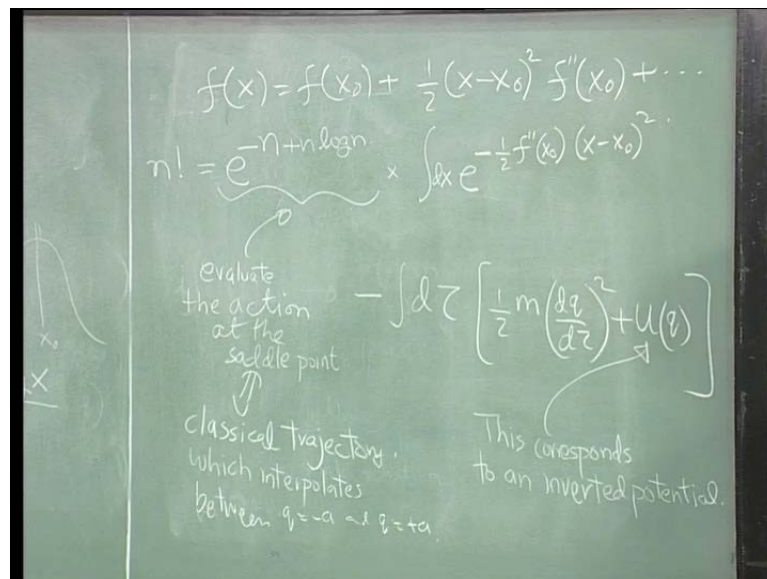 f(x) = f(x₀) + ½(x-x₀)² f''(x₀) + ...
n! = e^{-n+n log n} × ∫dx e^{-½f''(x₀)(x-x₀)²}.
x₀
X
evaluate
the action
at the
saddle point
⇕
classical trajectory.
which interpolates
between q=-a and q=+a.
- ∫dτ [½ m (dq/dτ)² + U(q)]
This coresponds
to an inverted potential.